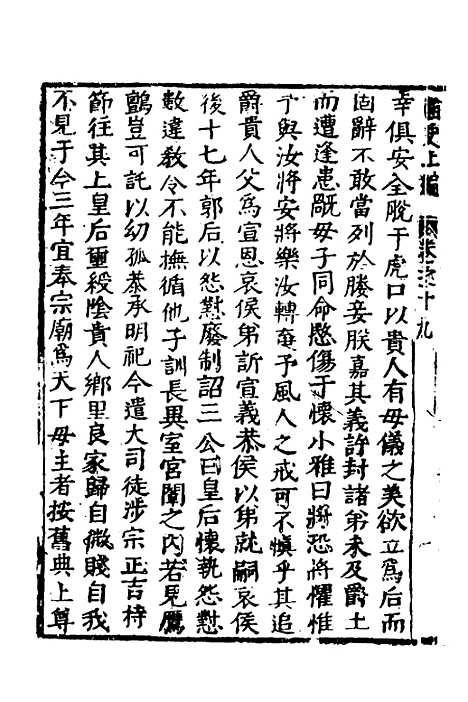 史上編
卷之十九
幸俱安全脫于虎口以貴人有母儀之美欲立爲后而
固辭不敢當列於媵妾朕嘉其義許封諸弟未及爵土
而遭逢患厄母子同命愍傷于懷小雅曰將恐將懼惟
予與汝將安將樂汝轉棄予風人之戒可不慎乎其追
爵貴人父爲宣恩哀侯弟訢宣義恭侯以弟就嗣哀侯
後十七年郭后以怨懟廢制詔三公曰皇后懷執怨懟
數違教令不能撫循他子訓長異室宮闈之內若見鷹
鸇豈可託以幼孤恭承明祀今遣大司徒涉宗正吉持
節往其上皇后璽綬陰貴人鄉里良家歸自微賤自我
不見于今三年宜奉宗廟爲天下母主者按舊典上尊